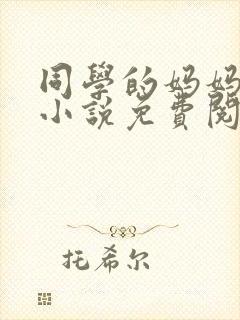 同學的妈妈
小說免費閱
托希尔